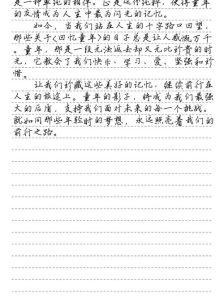 是一种单纯的陪伴。正是这份纯粹，使得童年
的友情成为人生中最为闪光的记忆。
如今，当我们站在人生的十字路口回望，
那些关于(回忆童年)的日子总是让人感慨万千
。童年，那是一段无法返去却又无比珍贵的时
光，它教会了我们快乐、学习、爱、坚强和珍
惜。
让我们珍藏这些美好的记忆，继续前行在
人生的旅途上。童年的影子，将成为我们最强
大的后盾，支持我们面对未来的每一个挑战。
就如同那些年轻时的梦想，永远照亮着我们的
前行之路。